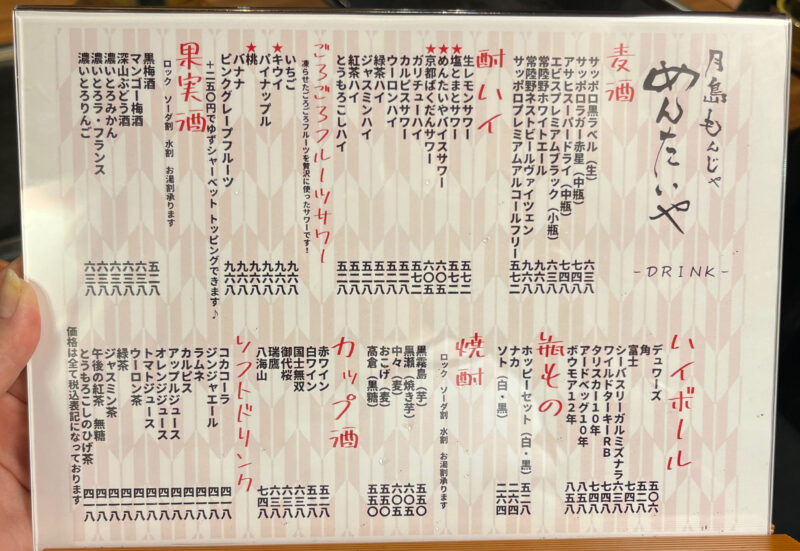 月島もんじゃ
めんたいや
-DRINK-
麦酒
サッポロ黒ラベル（生） 六三八
サッポロラガー赤星（中瓶） 七四八
アサヒスーパードライ（中瓶） 七四八
エビスプレミアムブラック（小瓶） 六三八
常陸野ホワイトエール 九六八
常陸野ネストビールヴァイツェン 九六八
サッポロプレミアムアルコールフリー 五七二
酎ハイ
生レモンサワー 五七二
★塩とまとサワー 五七二
★めんたいやバイスサワー 六〇五
★京都ばくだんサワー 六〇五
カルピスサワー 五七二
ガリチューハイ 五七二
ウーロンハイ 五二八
緑茶ハイ 五二八
ジャスミンハイ 五二八
紅茶ハイ 五二八
とうもろこしハイ 五二八
ごろごろフルーツサワー
凍らせたごろごろフルーツを贅沢に使ったサワーです！
いちご 九六八
★キウイ 九六八
パイナップル 九六八
★桃 九六八
バナナ 九六八
ピンクグレープフルーツ 九六八
＋二五〇円でゆずシャーベット トッピングできます♪
果実酒
ロック ソーダ割 水割 お湯割承ります
黒梅酒 五二八
マンゴー梅酒 六三八
深山ぶどう酒 六三八
濃いとろみかん 六三八
濃いとろラ・フランス 六三八
濃いとろりんご 六三八
ハイボール
デュワーズ 五〇六
角 五二八
富士 七四八
シーバスリーガルミズナラ 六三八
ワイルドターキーRB 七四八
タリスカー10年 七四八
アードベッグ10年 七四八
ボウモア12年 八五八
瓶もの
ホッピーセット（白・黒） 五二八
ナカ 二六四
ソト（白・黒） 二六四
焼酎
ロック ソーダ割 水割 お湯割承ります
黒霧島（芋） 五五〇
黒瀬（焼き芋） 六〇五
中々（麦） 六〇五
おこげ（麦） 五五〇
高倉（黒糖） 五五〇
カップ酒
赤ワイン 五二八
白ワイン 五二八
国士無双 六三八
御代桜 六三八
瑞鷹 六三八
八海山 七四八
ソフトドリンク
コカコーラ 四一八
ジンジャエール 四一八
ラムネ 四一八
カルピス 四一八
アップルジュース 四一八
オレンジジュース 四一八
トマトジュース 四一八
ウーロン茶 四一八
緑茶 四一八
ジャスミン茶 四一八
午後の紅茶 無糖 四一八
とうもろこしのひげ茶 四一八
価格は全て税込表記になっております